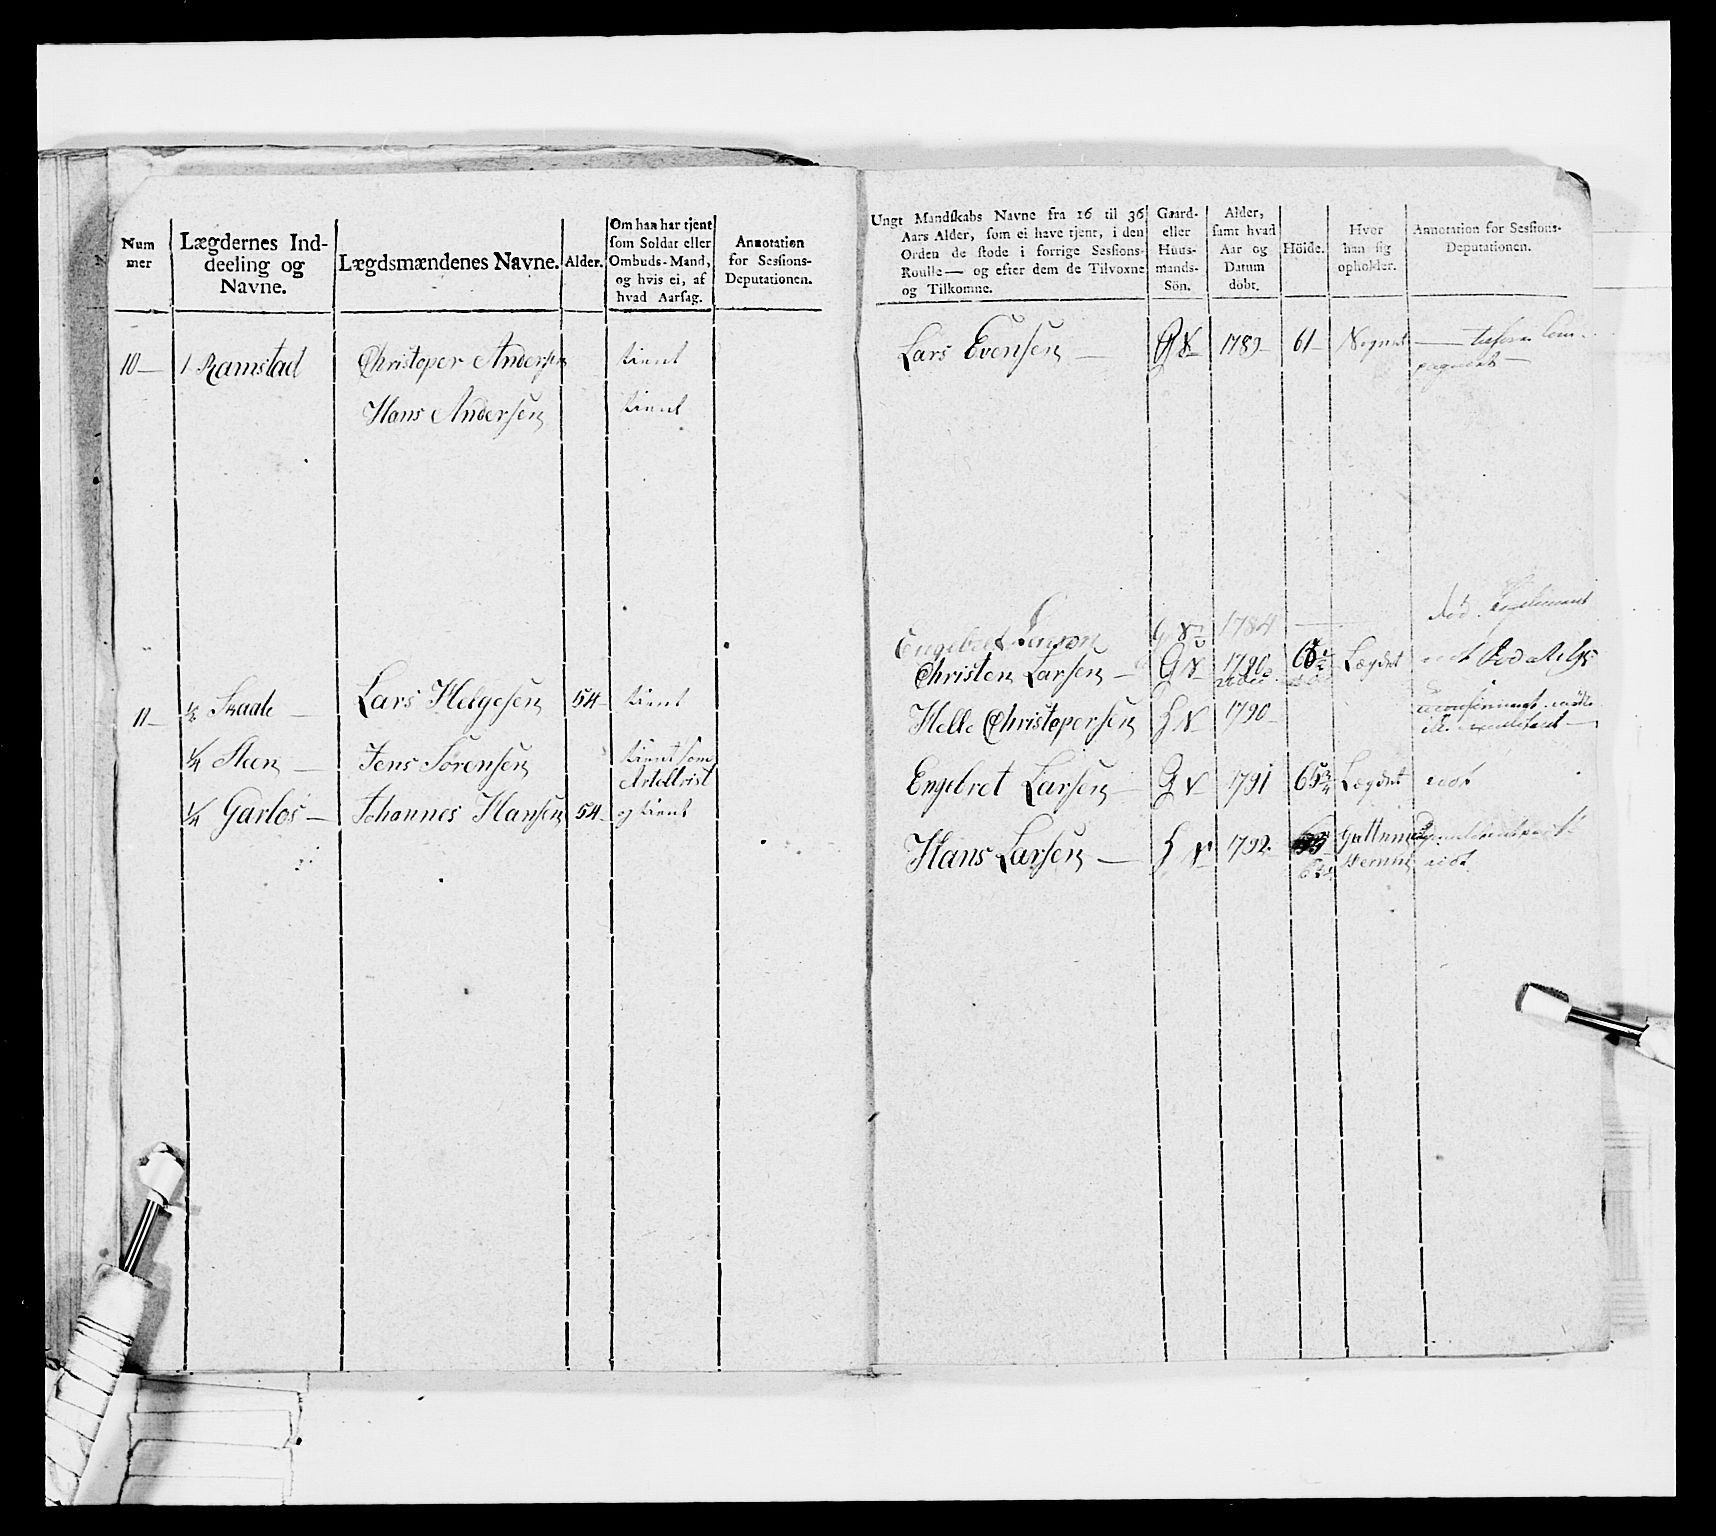 Num
mer
Lægdernes Ind-
deeling og
Navne.
Lægdsmændenes Navne.
Alder.
Om han har tjent
som Soldat eller
Ombuds-Mand,
og hvis ei, af
hvad Aarsag.
Annotation
for Sessions-
Deputationen.
10 — 1 Ramstad Christoper Andersen tient
Hans Andersen tient
11 — 1/2 Skaale — Lars Helgesen 54 tient
1/4 Steen — Jens Sørensen tient som
Artollrist
1/4 Garlos — Johannes Hansen 54 og tient
Ungt Mandskabs Navne fra 16 til 36
Aars Alder, som ei have tjent, i den
Orden de stode i forrige Sessions-
Roulle — og efter dem de Tilvoxne
og Tilkomne.
Gaard-
eller
Huus-
mands-
Sön.
Alder,
samt hvad
Aar og
Datum
döbt.
Höide.
Hvor
han sig
opholder.
Annotation for Sessions-
Deputationen.
Lars Evensen — G N 1789 61
Engebret 1784 — død
Christen Larsen — G N 1790 Lægdet
Helle Christopersen H N 1790
Engebret Larsen — G N 1791 65 3/4 Lægdet udt
Hans Larsen — H N 1792
udt